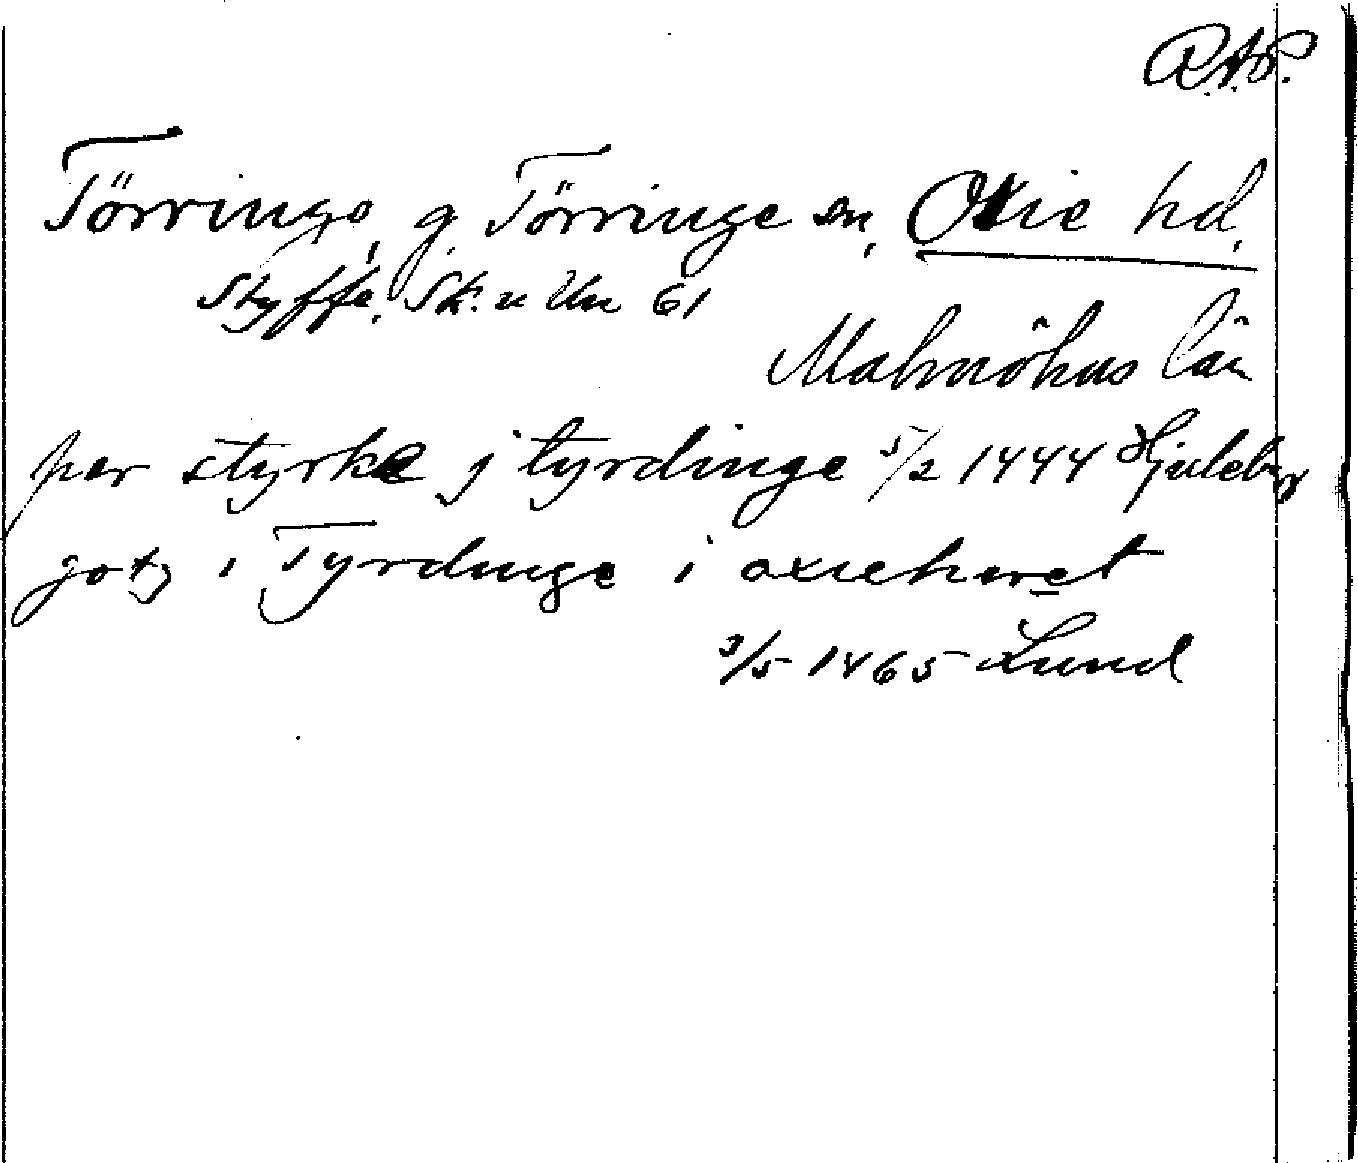 R.A.P.
Törringe, g. Törringe sn, Oxie hd.
Styffe, Sk. u Un 61
Malmöhus län
per styrke j tyrdinge 5/2 1444 Hjuleby
gotz i Tyrdinge i oxieheret
3/5 1465 Lund